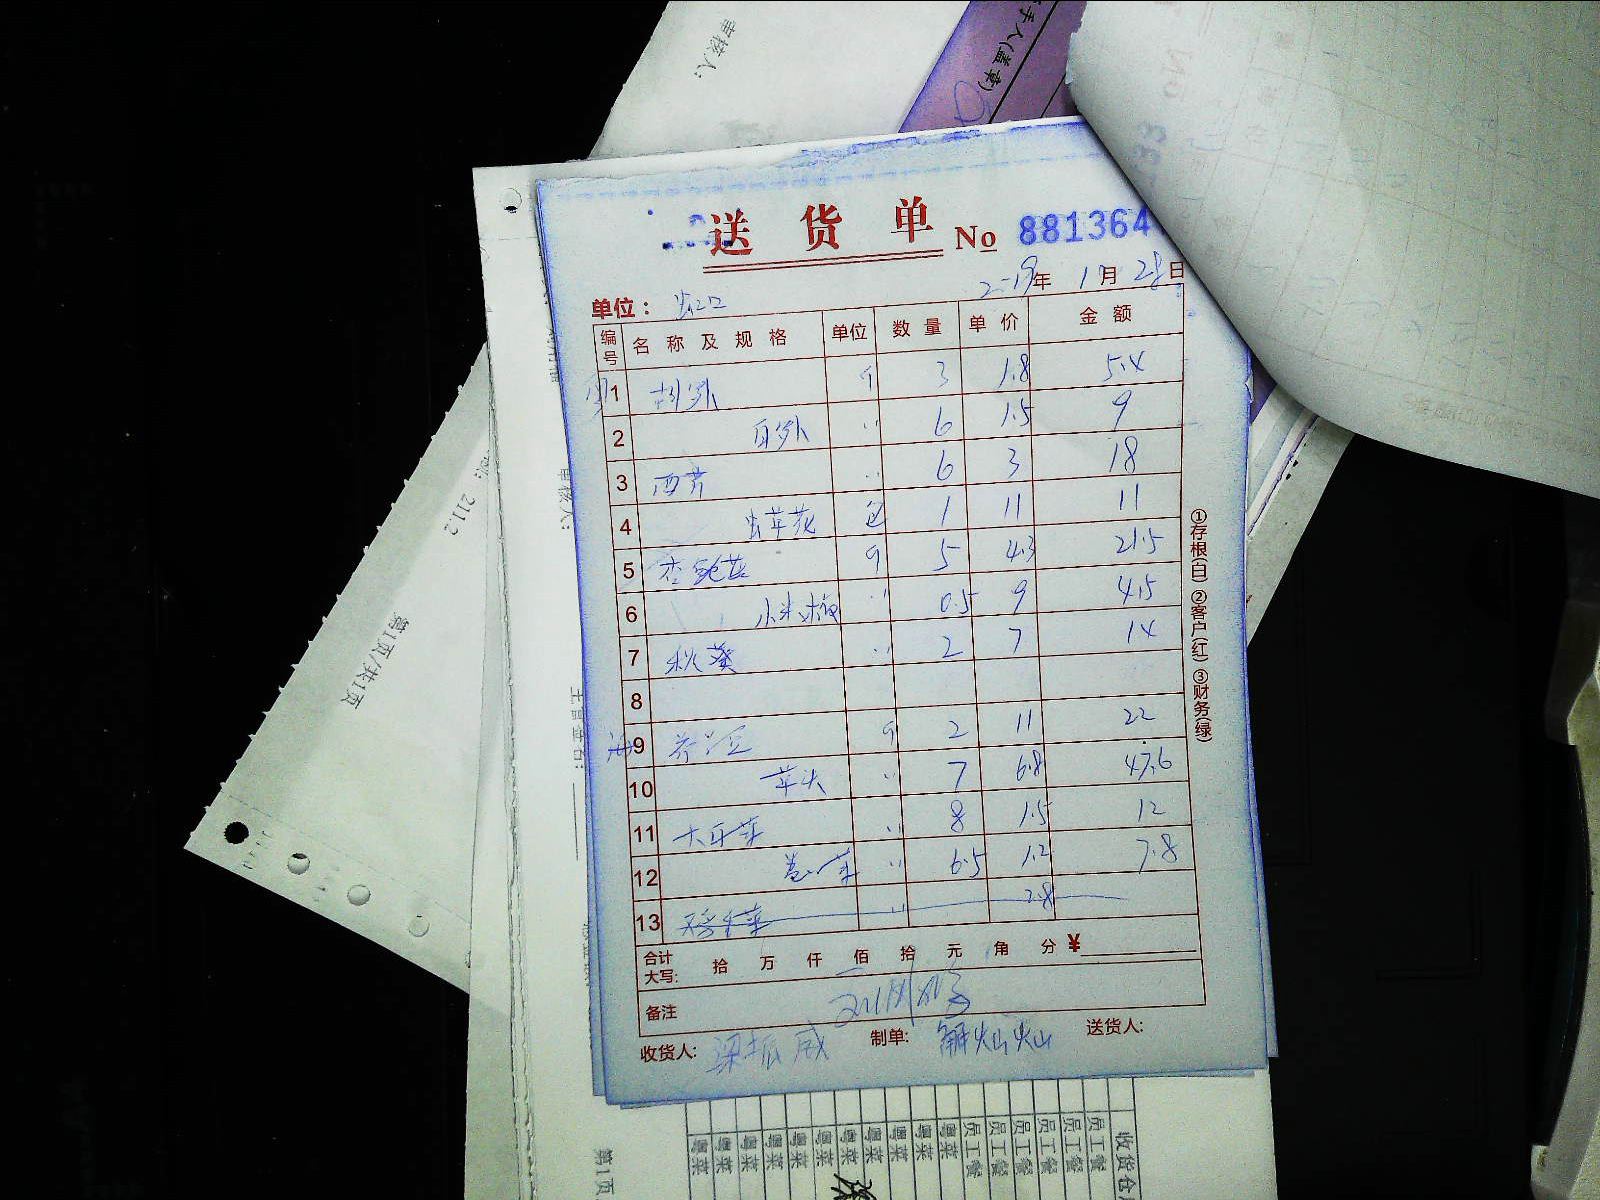 送货单 No 881364
2019年 1月 28日
单位：虹口
编号 名称及规格 单位 数量 单价 金额
1 斤 3 1.8 5.4
2 〃 6 1.5 9
3 西芹 〃 6 3 18
4 虫草花 包 1 11 11
5 杏鲍菇 斤 5 4.3 21.5
6 小米椒 〃 0.5 9 4.5
7 秋葵 〃 2 7 14
8
9 荷兰豆 斤 2 11 22
10 草头 〃 7 6.8 47.6
11 大白菜 〃 8 1.5 12
12 卷心菜 〃 6.5 1.2 7.8
13 〃 2.8
合计大写： 拾 万 仟 佰 拾 元 角 分 ¥
备注
收货人：梁振威 制单： 解灿灿 送货人：
①存根(白) ②客户(红) ③财务(绿)
审核人：
手人(盖章)
审核人：
211.2
第1页/共1页
第1页
收货仓
员工餐 员工餐 员工餐 员工餐 员工餐 员工餐
粤菜 粤菜 粤菜 粤菜 粤菜 粤菜 粤菜 粤菜 粤菜 粤菜 粤菜